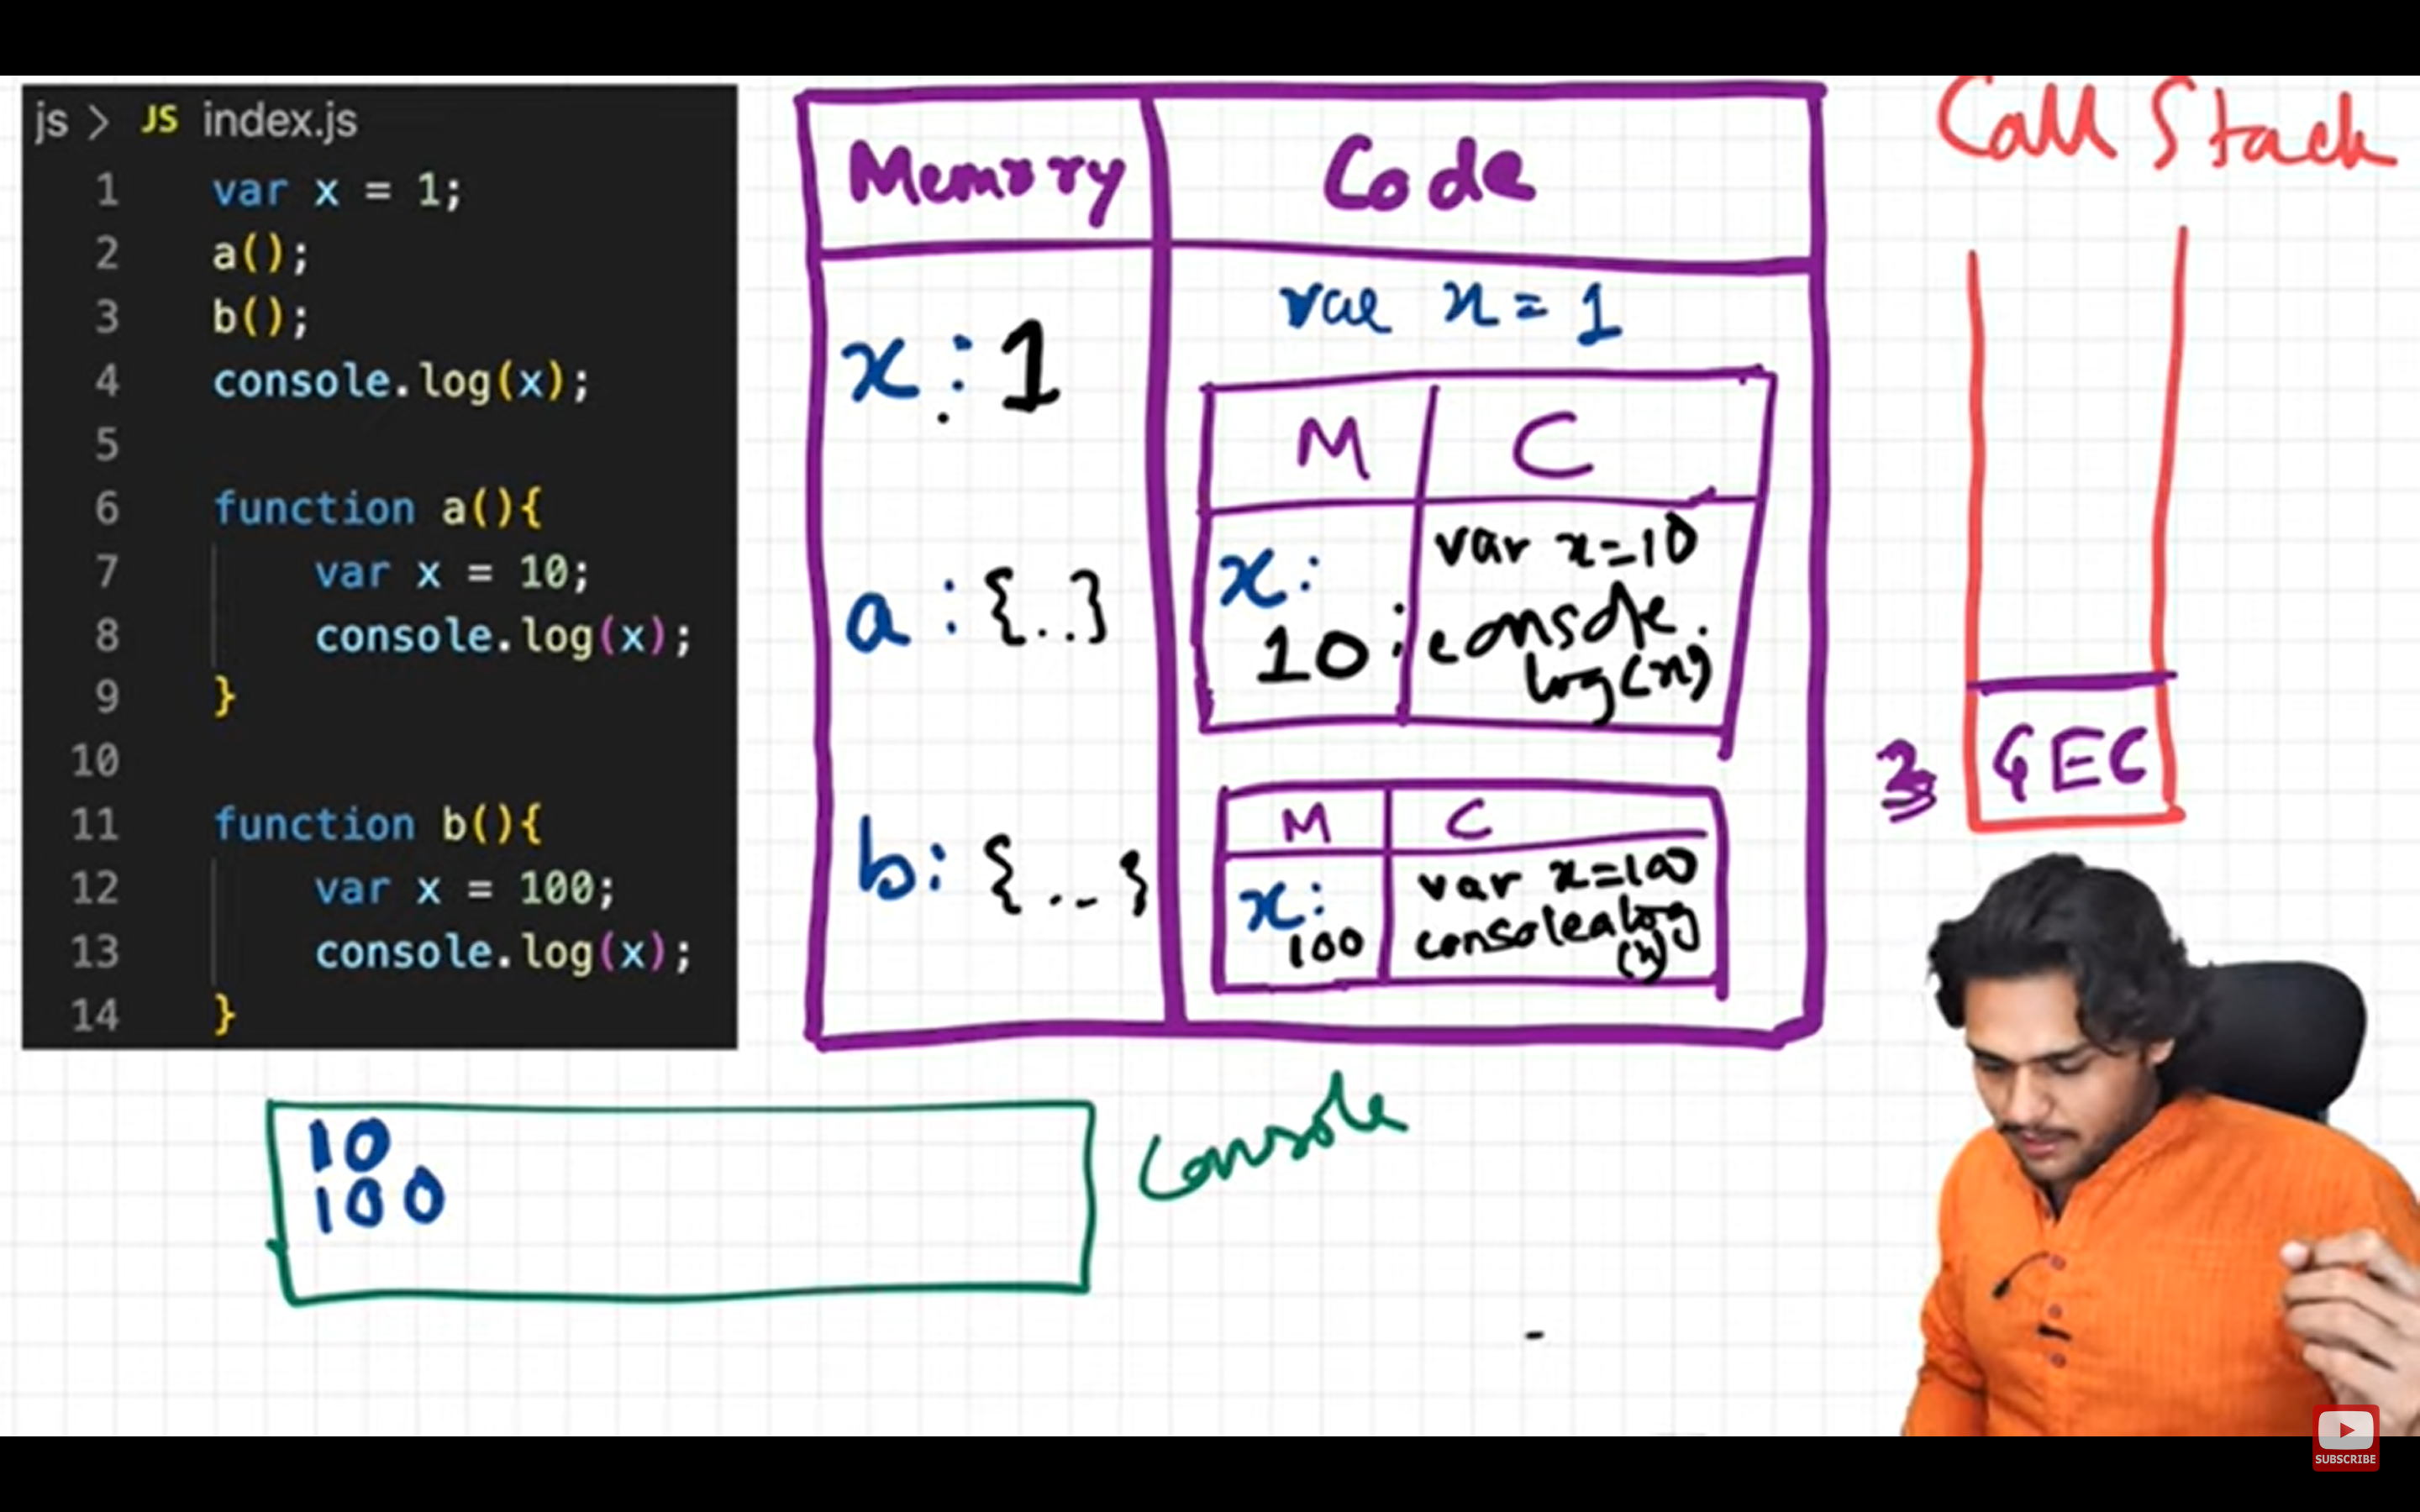 js > JS index.js
1 var x = 1;
2 a();
3 b();
4 console.log(x);
5
6 function a(){
7 var x = 10;
8 console.log(x);
9 }
10
11 function b(){
12 var x = 100;
13 console.log(x);
14 }
Memory Code
x : 1
a : {..}
b : {...}
var x = 1
M C
x:
10
var x=10
console.
log(x)
M C
x:
100
var x=100
console log
(x)
Call Stack
GEC
10
100
Console
SUBSCRIBE